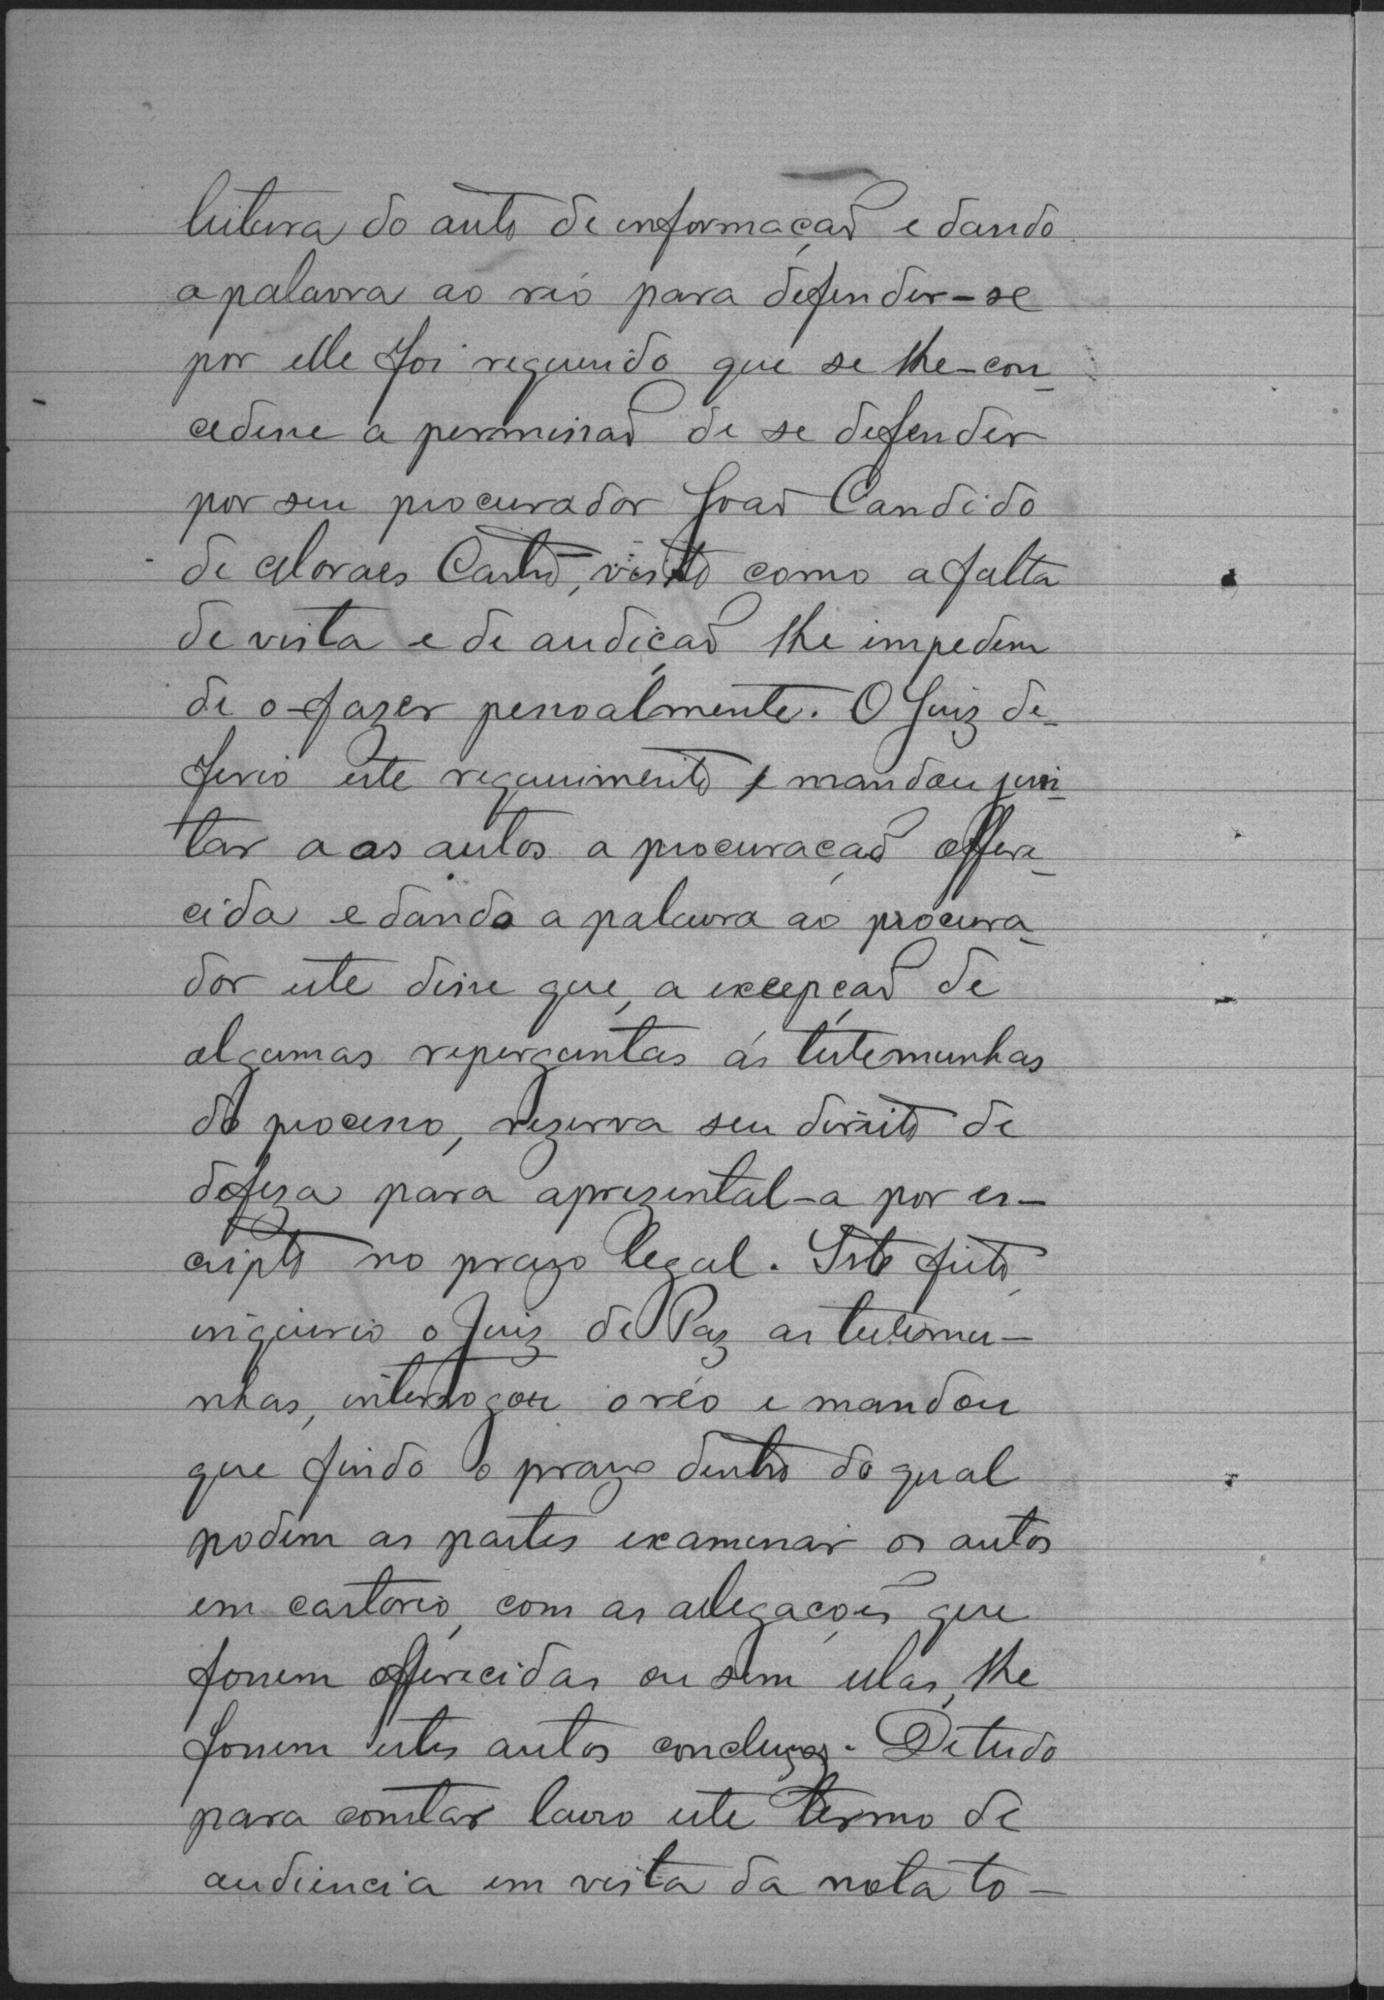 leitura do auto de informação e dando
a palavra ao reo para defender-se
por elle foi requerido que se lhe-con-
cedesse a permissão de se defender
por seu procurador João Candido
de Moraes Castro, visto como a falta
de vista e de audição lhe impedem
de o-fazer pessoalmente. O Juiz de-
ferio este requerimento e mandou jun-
tar a os autos a procuração offere-
cida e dando a palavra ao procura-
dor este disse que, a excepção de
algumas reperguntas ás testemunhas
do processo, rezerva seu direito de
defeza para aprezental-a por es-
cripto no prazo legal. Isto feito,
inquerio o Juiz de Paz as testemu-
nhas, interrogou o réo e mandou
que findo o prazo dentro do qual
podem as partes examinar os autos
em cartorio, com as allegações que
forem offerecidas ou sem ellas, lhe
fossem estes autos concluzos. De tudo
para constar lavro este termo de
audiencia em vista da nota to-